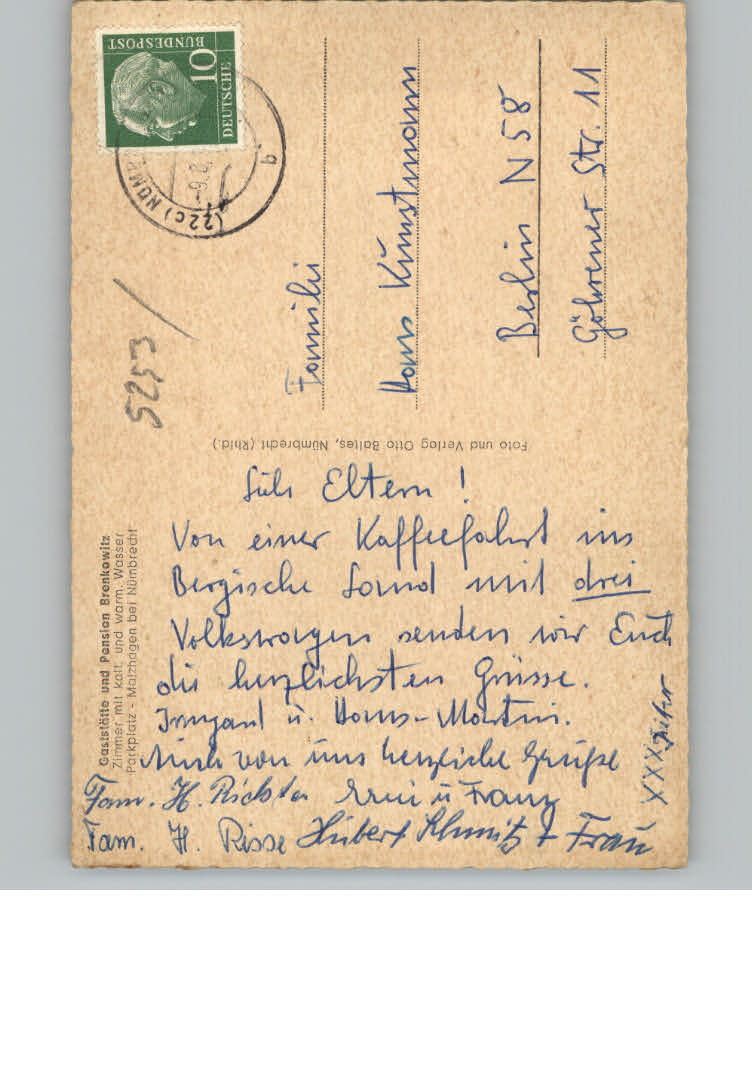 Gaststätte und Pension Brenkowitz
Zimmer mit kalt. und warm. Wasser
Parkplatz - Malzhagen bei Nümbrecht
Liebe Eltern!
Von einer Kaffeefahrt ins
Bergische Land mit drei
Volkswagen senden wir Euch
die herzlichsten Grüsse.
Irmgard u. Hans-Martin.
Auch von uns herzliche Grüße
Fam. H. Richter Erni u Franz
Fam. H. Risse Hubert Schmitz + Frau
XXX
Foto und Verlag Otto Baltes, Nümbrecht (Rhld.)
DEUTSCHE
BUNDESPOST
10
(22c)
b
5253
Familie
Hans Kunstmann
Berlin N 58
Göhrener Str. 11